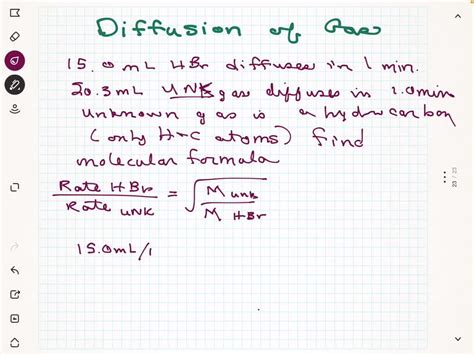 Diffusion of Gas
15.0 mL HBr diffuses in 1 min.
20.3mL UNK gas diffuses in 1.0min
unknown gas is a hydrocarbon
(only H-C atoms) find
molecular formula
Rate HBr / Rate UNK = √ M unk / M HBr
15.0mL/1
23 / 25